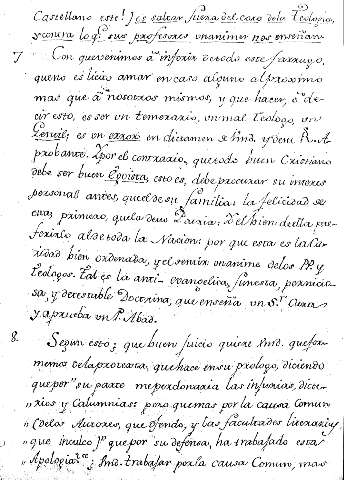 Castellano este! Jes saltar, fuera del caso de la Teologia,
y contra lo q.e sus profesores unanimes nos enseñan.
7 Con que venimos à inferir de todo este farrago,
que no es licito amar en caso alguno al proximo
mas que à nosotros mismos, y que hacer, ò de-
cir esto, es ser un temerario, un mal Teologo, un
Gentil; es un error en dictamen de Vmd. y de su R. A
probante. Y por el contrario, que todo buen Cristiano
debe ser buen Egoista, esto es, debe procurar su interes
personal antes, que el de su familia: la felicidad de
esta, primero, que la de su Patria: y el bien de ella pre-
ferirlo al de toda la Nacion: por que esta es la Ca-
ridad bien ordenada, y el sentir unanime de los PP. y
Teologos. Tal es la anti-evangelica, funesta, pernicio-
sa, y detestable Doctrina, que enseña un S.r Cura,
y aprueba un P. Abad.
8. Segun esto; que buen juicio quiere Vmd. que for-
memos de la protesta, que hace en su prologo, diciendo
que por "su parte me perdonaria las injurias, dicte-
"rios y Calumnias: pero que mas por la causa Comun
"(de los Autores, que ofendo, y las facultades literarias
" que inculco) que por su defensa, ha trabajado esta
Apologia; Vmd. trabajar por la causa Comun, mas